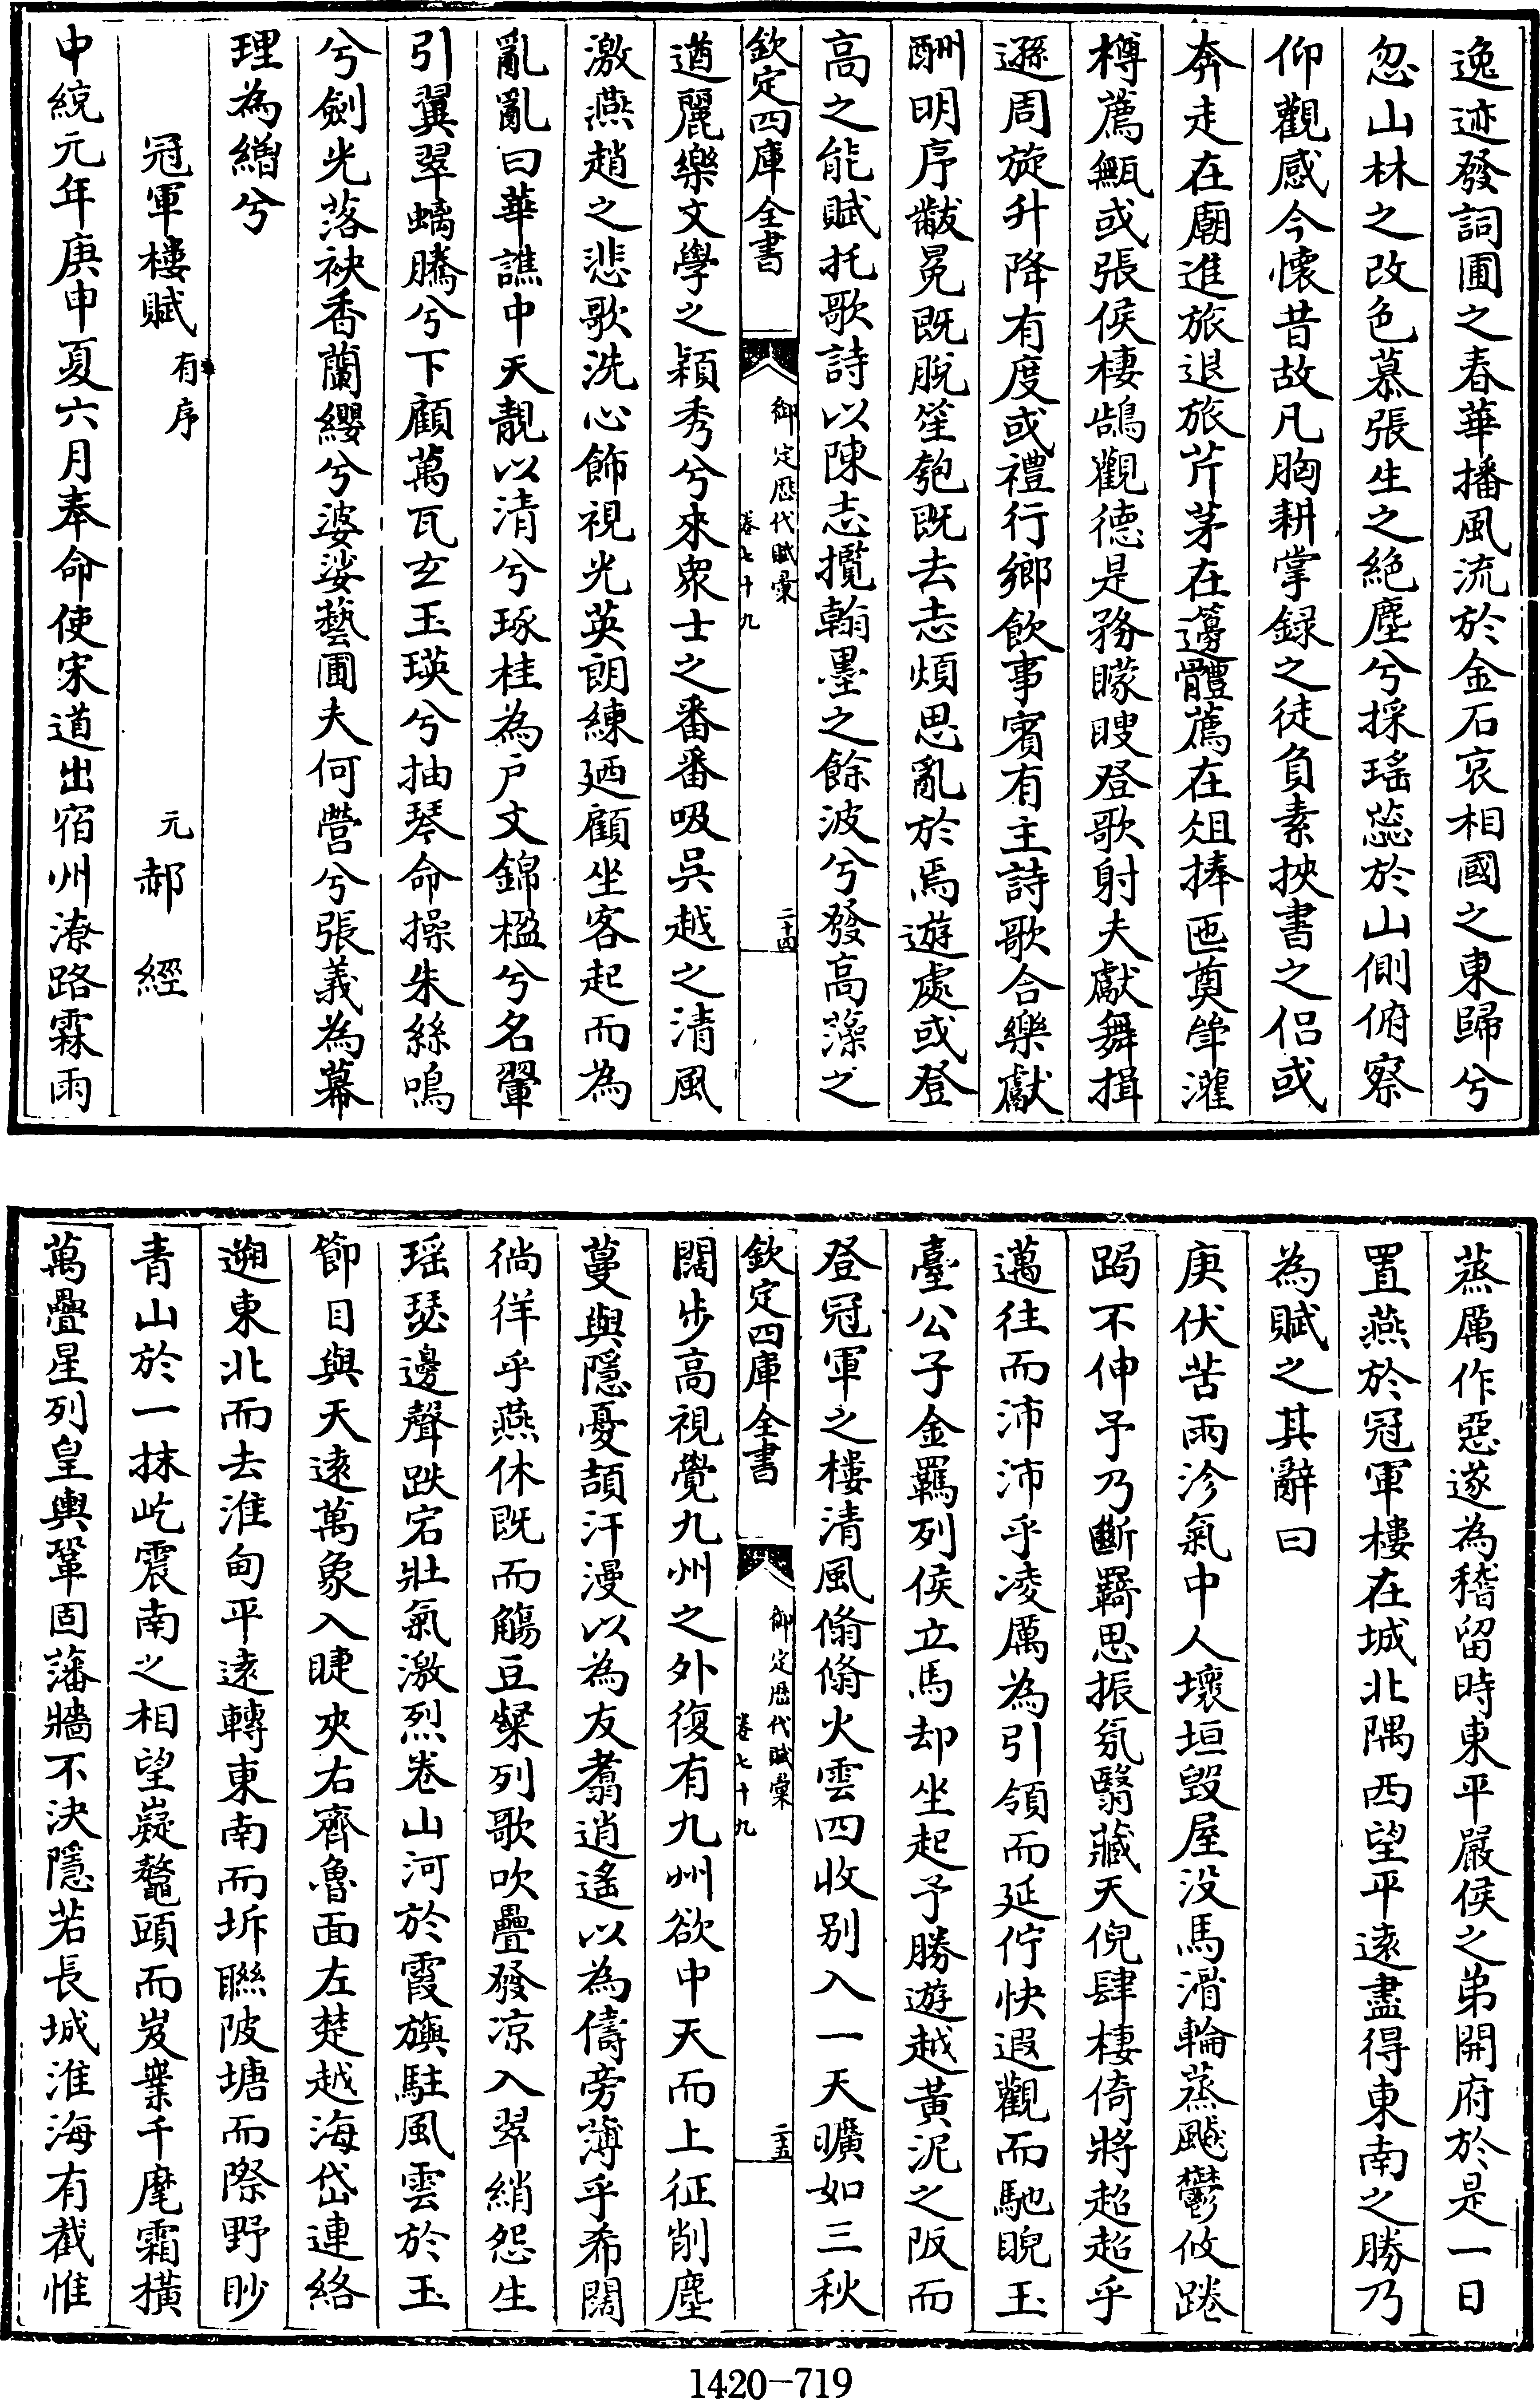 逸迹發詞圃之春華播風流於金石哀相國之東歸兮
忽山林之改色慕張生之絕塵兮採瑤蕊於山側俯察
仰觀感今懷昔故凡胸耕掌録之徒負素挾書之侣或
奔走在廟進旅退旅芹茅在籩體薦在俎捧匜奠斝灌
樽薦甒或張侯棲鵠觀德是務矇瞍登歌射夫獻舞揖
遜周旋升降有度或禮行鄉飲事賓有主詩歌合樂獻
酬明序黻冕既脫笙匏既去志煩思亂於焉遊處或登
高之能賦托歌詩以陳志攬翰墨之餘波兮發高藻之
欽定四庫全書
御定歷代賦彙
卷七十九
二十四
遒麗樂文學之穎秀兮兮來衆士之番番吸吳越之清風
激燕趙之悲歌洗心飾視光英朗練廼顧坐客起而為
亂亂曰華譙中天靚以清兮琢桂為户文錦楹兮名翬
引翼翠螭騰兮下顧萬瓦玄玉瑛兮抽琴命操朱絲鳴
兮劍光落袂香蘭纓兮婆娑藝圃夫何營兮張義為幕
理為繒兮
冠軍樓賦 有序
元 郝經
中統元年庚申夏六月奉命使宋道出宿州潦路霖雨
蒸厲作惡遂為稽留時東平嚴侯之弟開府於是一日
置燕於冠軍樓在城北隅西望平遠盡得東南之勝乃
為賦之其辭曰
庚伏苦雨沴氣中人壞垣毀屋没馬滑輪蒸颷鬱攸踡
跼不伸予乃斷羇思振氛翳藏天倪肆棲倚將超超乎
邁往而沛沛乎凌厲為引領而延佇快遐觀而馳睨玉
臺公子金羈列侯立馬却坐起予勝遊越黃泥之阪而
登冠軍之樓清風翛翛火雲四收别入一天曠如三秋
欽定四庫全書
御定歷代賦彙
卷七十九
二十五
闊步高視覺九州之外復有九州欲中天而上征削塵
蔓與隱憂頡汗漫以為友翥逍遙以為儔旁薄乎希闊
徜徉乎燕休既而觴豆粲列歌吹疊發凉入翠綃怨生
瑶瑟邊聲跌宕壯氣激烈卷山河於霞旟駐風雲於玉
節目與天遠萬象入睫夾右齊魯面左楚越海岱連絡
遡東北而去淮甸平遠轉東南而坼聯陂塘而際野眇
青山於一抹屹震南之相望嶷鼇頭而岌嶪千麾霜横
萬疊星列皇輿鞏固藩牆不決隱若長城淮海有截惟
1420-719